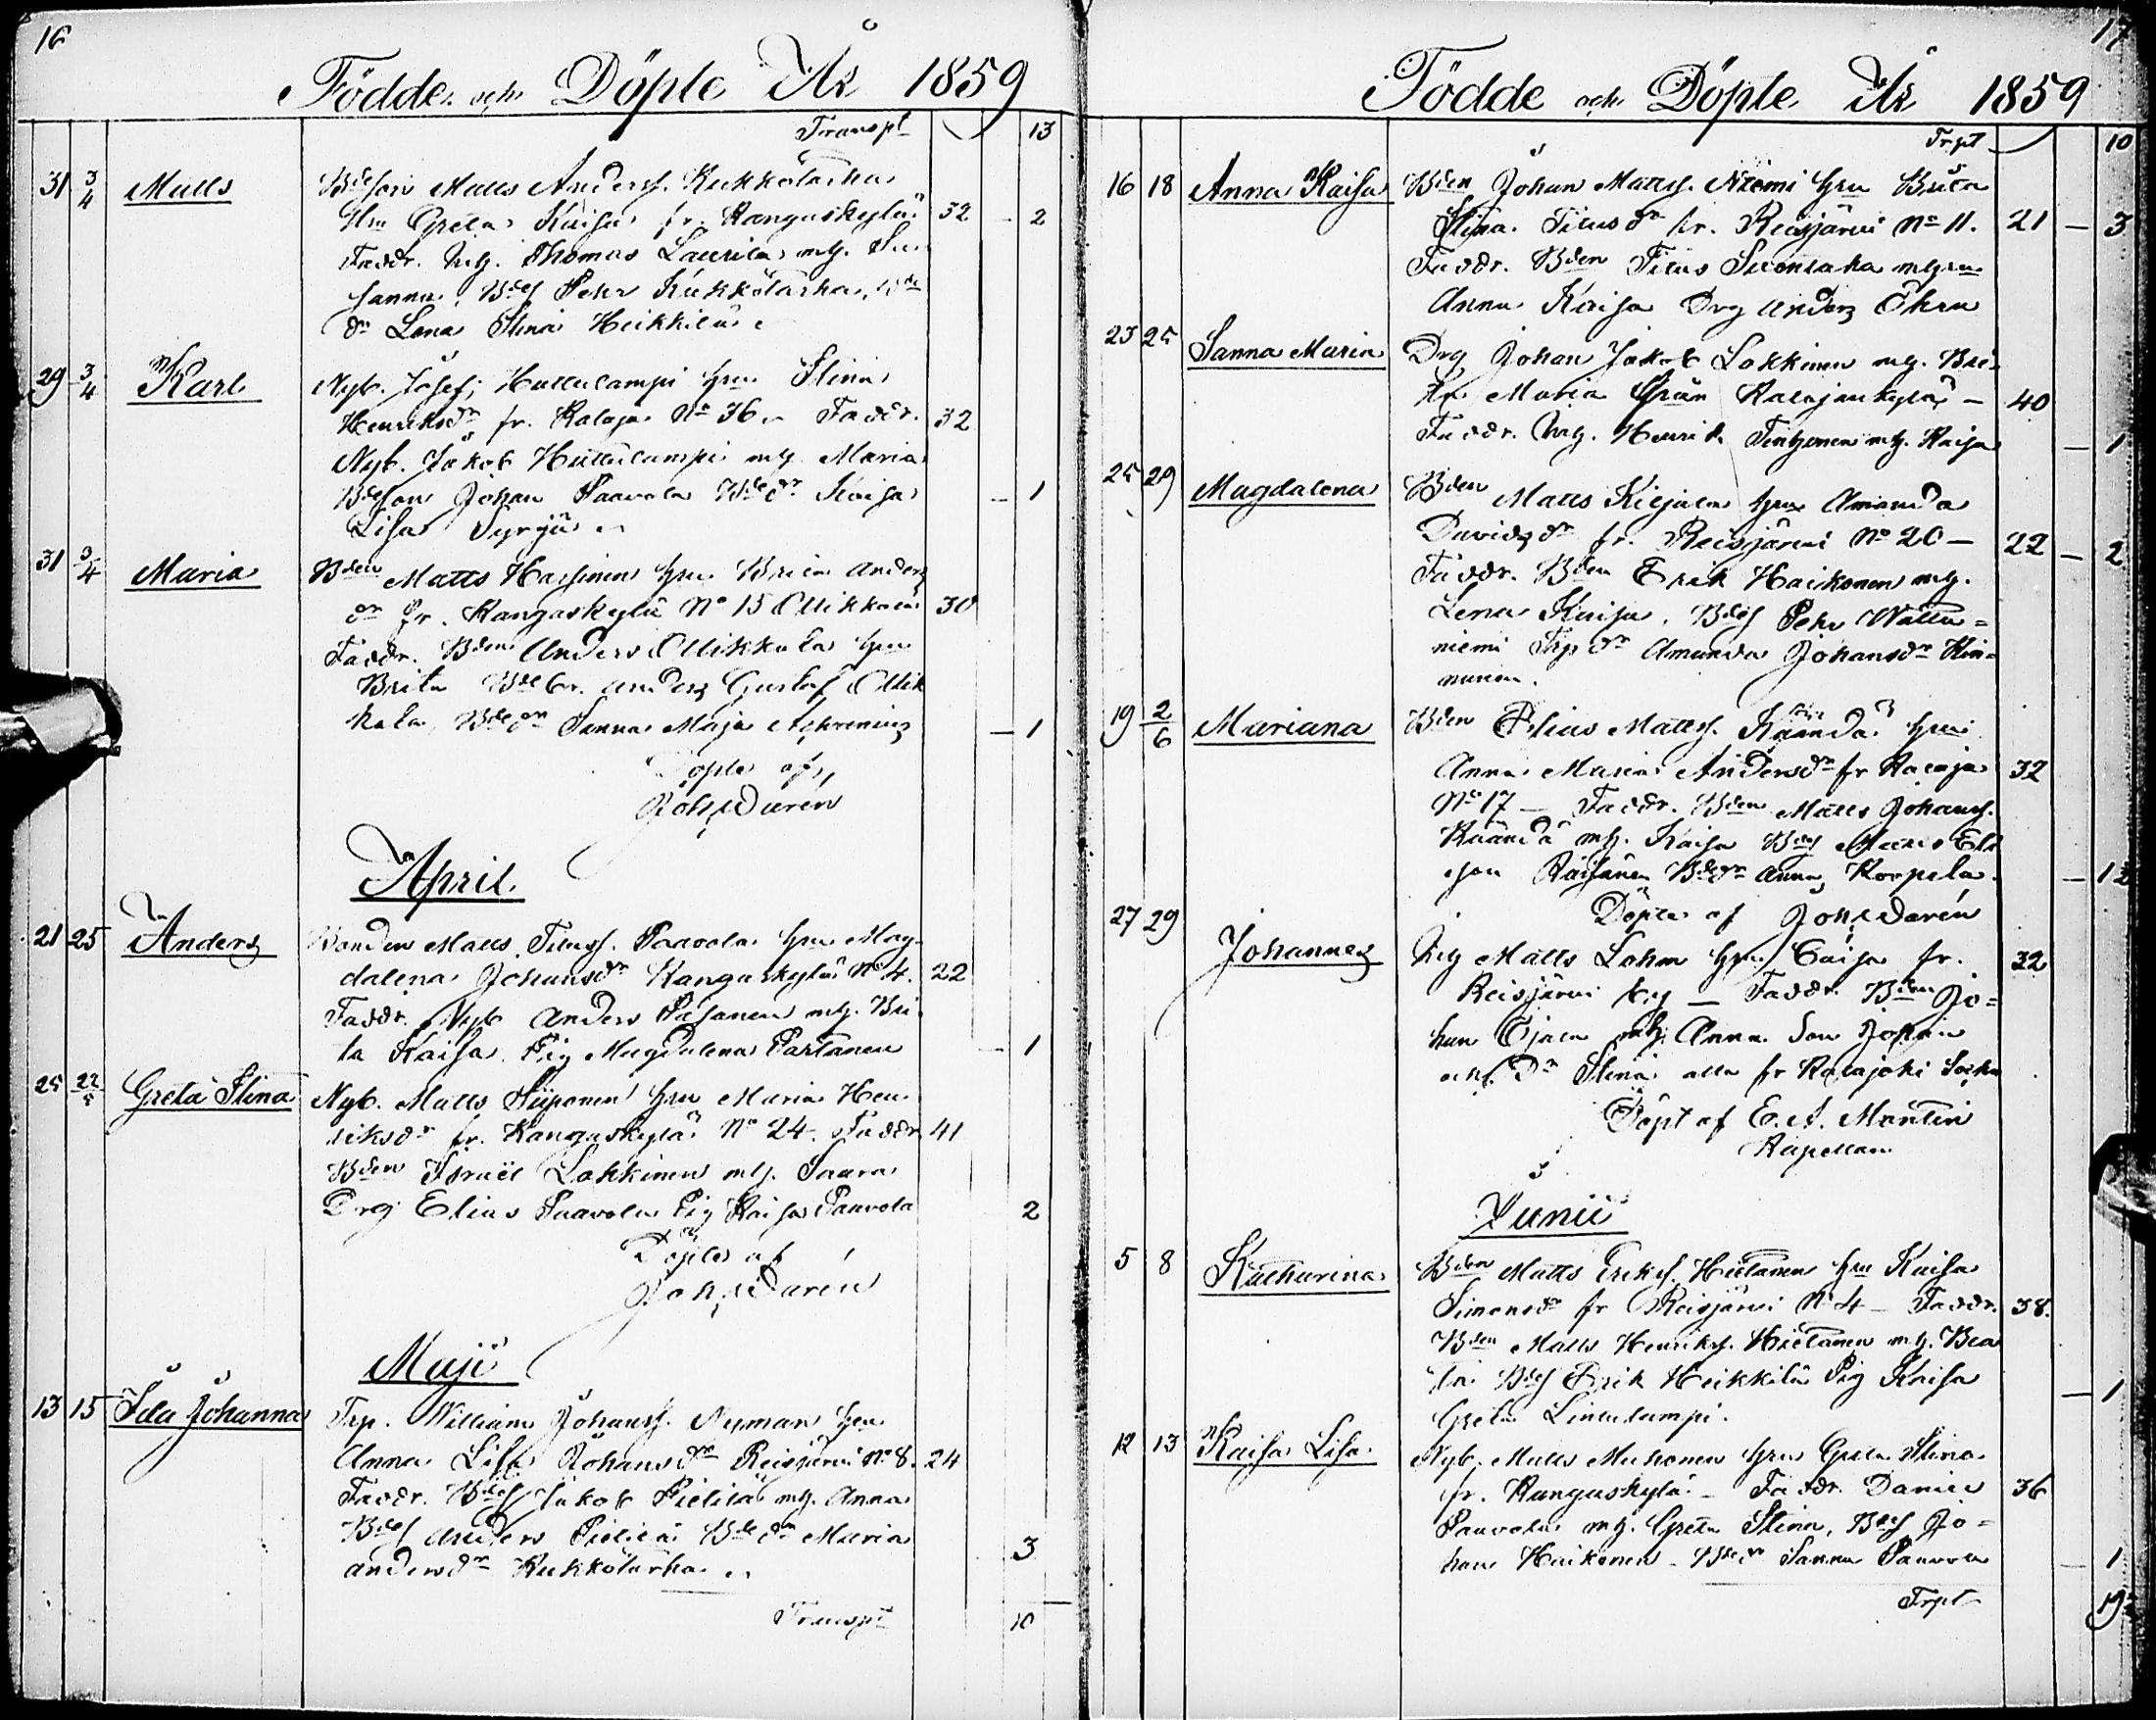 16
Födde och Döpte År 1859
Transpt 13
31 3/4 Matts Bdeson Matts Anderss. Kukkotarha
Hru Greta Kaisa fr. Kangaskylä 32 - 2
Faddr. Thomas Laurila mh. Su-
sanna, Bdes Pehr Kukkotarha, Bde
dr Lena Stina Heikkilä
29 3/4 Karl Nyb. Josef Hullulampi hru Stina
Henriksdr fr. Kalaja No 36 Faddr. 32
Nyb. Jakob Hullulampi mh Maria
Bdeson Johan Paavola Bdedr Kaisa - 1
Lisa Syrjä
31 3/4 Maria Bden Matts Hassinen hru Brita Anders
dr fr. Kangaskylä No 15 Ollikkala 30
Faddr. Bden Anders Ollikkala hru
Brita Anders Gustaf Ollik
kala, Bdedr Sanna Maja - 1
Döpte af
Joh. Durén
April
21 25 Anders Bonden Matts Tituss. Paavola hru Mag-
dalena Johansdr Kangaskylä No 4. 22
Faddr. Nyb Anders Pasanen mh. Bri-
ta Kaisa. Pig Magdalena Partanen - 1
25 22/5 Greta Stina Nyb. Matts Siiponen hru Maria Hen-
riksdr fr. Kangaskylä No 24. Faddr 41
Bden Israel Lokkinen mh. Saara
Drg Elias Paavola Pig Kaisa Paavola 2
Döpte af
Joh. Durén
Maji
13 15 Ida Johanna Trp. William Johanss. Nyman hru
Anna Lisa Johansdr Reisjärvi No 8. 24
Faddr. Bdes Jakob Pietilä mh. Anna
Bdes Anders Pietilä Bdedr Maria
Andersdr Kukkotarha 3
Transpt 10
17
Födde och Döpte År 1859
Trpt 10
16 18 Anna Kaisa Bden Johan Matts. Niemi hru Brita
Stina Titusdr fr. Reisjärvi No 11. 21 - 3
Faddr. Bden Titus mhru
Anna Kaisa Drg Anders Öhrn
23 25 Sanna Maria Drg Johan Jakob Lokkinen mh. Bri-
Maria Grän Kalajankylä - 40
Faddr. Henrik mh. Kaisa - 1
25 29 Magdalena Bden Matts Kiljala hru Amanda
Davidsdr fr. Reisjärvi No 20 - 22 - 2
Faddr. Bden Erik Haikonen mh.
Lena Kaisa, Bdes Pehr Wattu=
niemi Trp dr Amanda Johansdr Kin-
nunen.
19 2/6 Mariana Bden Elias Mattss. Käändä hru
Anna Maria Andersdr fr Kalaja 32
No 17 - Faddr. Bden Matts Johanss.
Käändä mh. Kaisa Bdes Matts Eli
son Räisänen Bdedr Anna Korpela. - 1
Döpte af Joh. Durén
27 29 Johannes Matts Lohm hru Caisa fr. 32
Reisjärvi by - Faddr. Bden Jo=
han Ojala mh. Anna. Son Johan
och Dr Stina alla fr Kalajoki Sockn
Döpt af E. A. Montin
Kapellan
Junii
5 8 Katharina Bden Matts Eriks. Hietanen hru Kaisa
Simonsdr fr Reisjärvi No 4 - Faddr. 38.
Bden Matts Henrikss. Hietanen mh. Bea
ta Bdes Erik Heikkilä Pig Kaisa - 1
Greta Linlulampi.
12 13 Kaisa Lisa Nyb. Matts Muhonen hru Greta Stina
fr. Kangaskylä - Faddr. Daniel 36
Paavola mh. Greta Stina, Bdes Jo=
han Haikonen - Bdedr Sanna Paavola - 1
Trpt 19